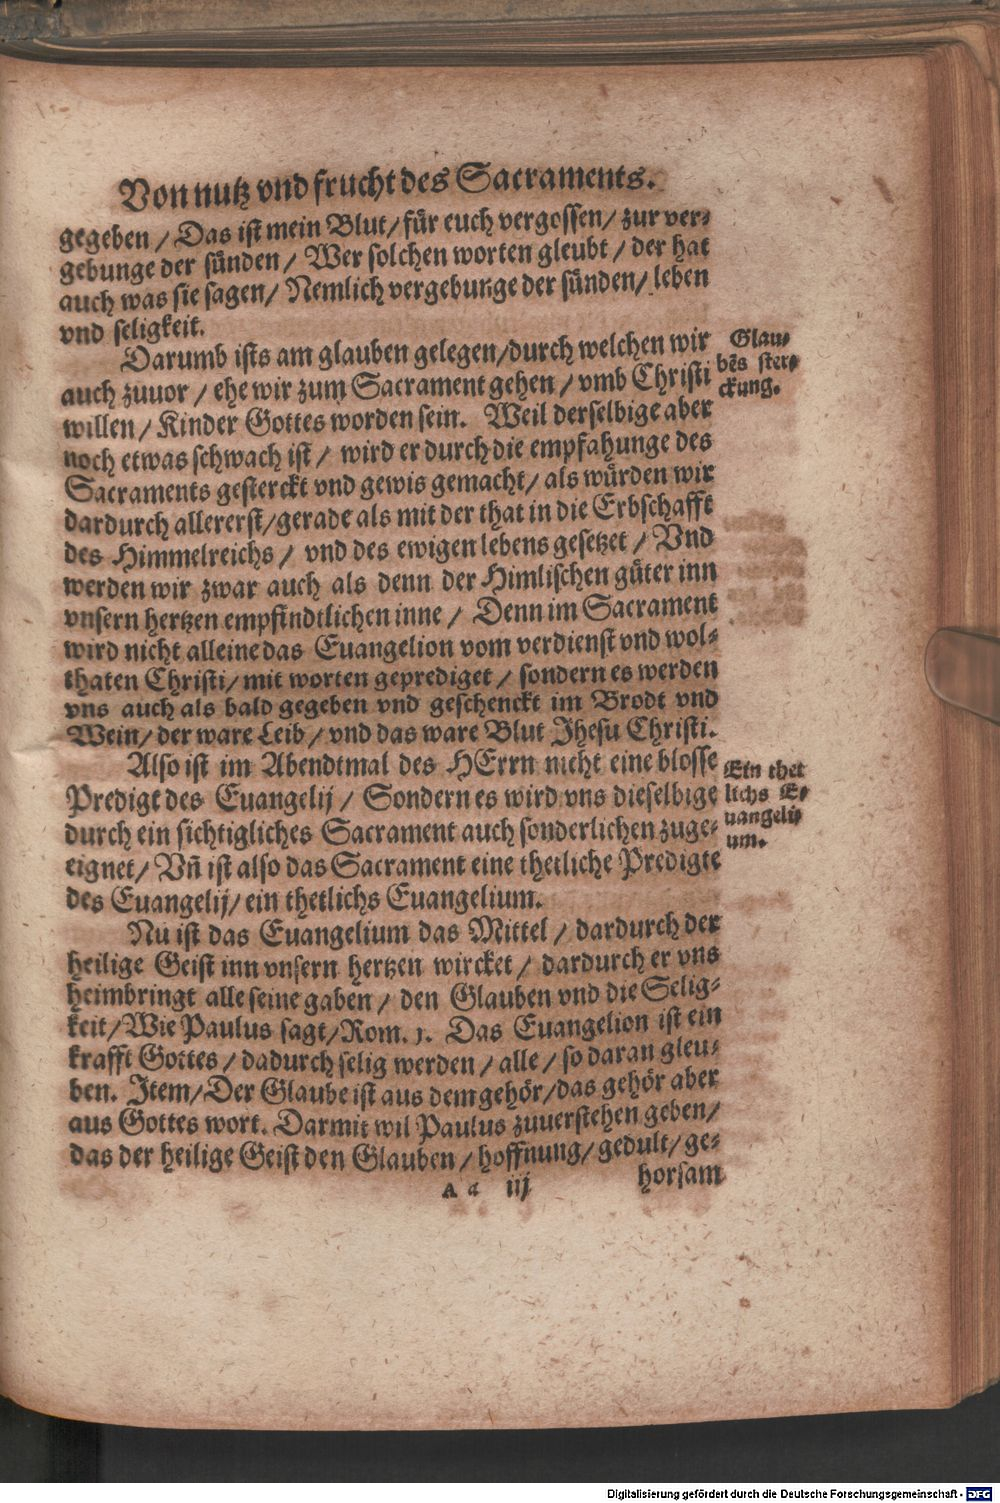 Von nutz vnd frucht des Sacraments.
gegeben / Das ist mein Blut / für euch vergossen / zur ver-
gebunge der sünden / Wer solchen worten gleubt / der hat
auch was sie sagen / Nemlich vergebunge der sünden / leben
vnd seligkeit.
Darumb ists am glauben gelegen / durch welchen wir
auch zuuor / ehe wir zum Sacrament gehen / vmb Christi
willen / Kinder Gottes worden sein. Weil derselbige aber
noch etwas schwach ist / wird er durch die empfahunge des
Sacraments gesterckt vnd gewis gemacht / als würden wir
dardurch allererst / gerade als mit der that in die Erbschafft
des Himmelreichs / vnd des ewigen lebens gesetzet / Vnd
werden wir zwar auch als denn der Himlischen güter inn
vnsern hertzen empfindtlichen inne / Denn im Sacrament
wird nicht alleine das Euangelion vom verdienst vnd wol-
thaten Christi / mit worten geprediget / sondern es werden
vns auch als bald gegeben vnd geschenckt im Brodt vnd
Wein / der ware Leib / vnd das ware Blut Jhesu Christi.
Glau-
bēs ster-
ckung.
Also ist im Abendtmal des HErrn nicht eine blosse
Predigt des Euangelij / Sondern es wird vns dieselbige
durch ein sichtigliches Sacrament auch sonderlichen zuge-
eignet / Vñ ist also das Sacrament eine thetliche Predigte
des Euangelij / ein thetlichs Euangelium.
Ein thet
lichs E-
uangeli-
um.
Nu ist das Euangelium das Mittel / dardurch der
heilige Geist inn vnsern hertzen wircket / dardurch er vns
heimbringt alle seine gaben / den Glauben vnd die Selig-
keit / Wie Paulus sagt / Rom. 1. Das Euangelion ist ein
krafft Gottes / dadurch selig werden / alle / so daran gleu-
ben. Item / Der Glaube ist aus dem gehör / das gehör aber
aus Gottes wort. Darmit wil Paulus zuuerstehen geben /
das der heilige Geist den Glauben / hoffnung / gedult / ge-
A a iij horsam
Digitalisierung gefördert durch die Deutsche Forschungsgemeinschaft - DFG